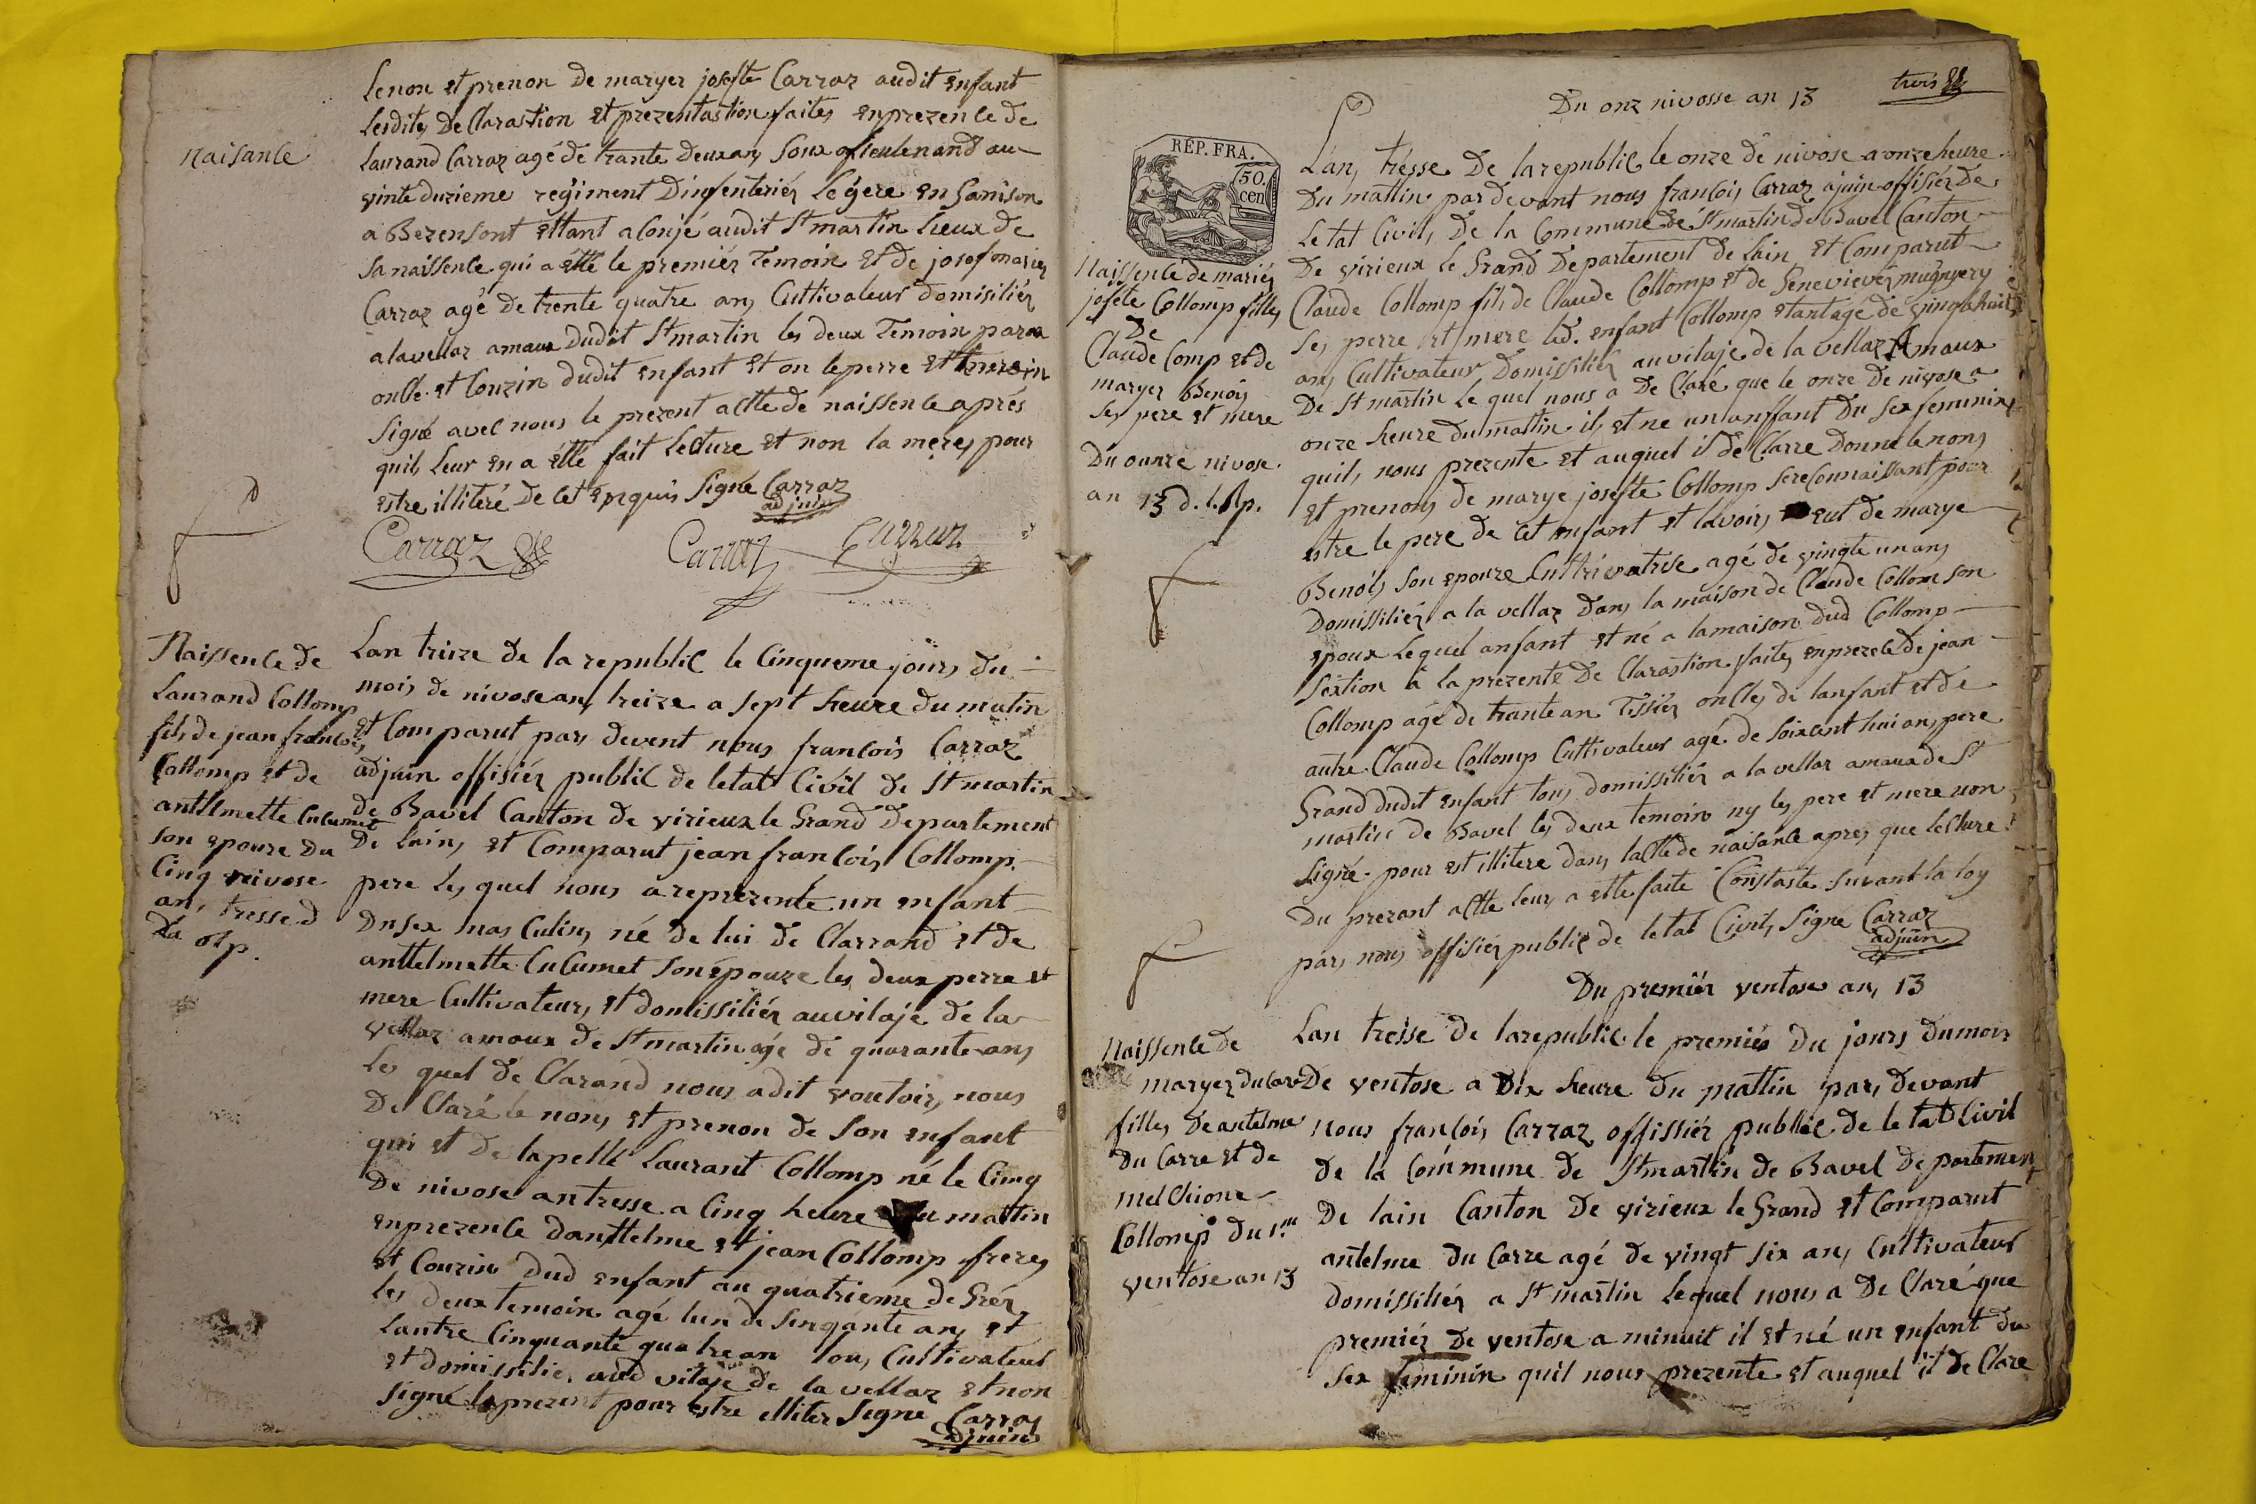 naisance
Lenon et prenon de maryer josefte Carraz audit enfant
Lesdites Declarastion et prezentastion faites enprezence de
Laurand Carraz agé de trante deux an, Soux oficulenand au
vinte duzieme regiment Dinfenteriér Legere en Garnison
a Bezensont ettant a Conjé audit St martin Lieux de
Sa naissence qui a etté le premiér Temoin et de josef marier
Carraz agé de trente quatre an, Cultivateur domisiliér
alavellaz amaux dudit St martin les deux Temoin
oncle et Couzin dudit enfant et on le perre et
Signé avec nous le prezent actte de naissence aprés
quil, Leur en a étté fait Lecture et non la mere, pour
estre illiteré de cet enquis Signé Carraz
adjuin
Carraz Carraz Carraz
Naissence de
Laurand Collomp
fils de jean francois
Collomp et de
anttelmette Cucumet
son epouze Du
Cinq nivose
an, tresse d
La Rp.
Lan treize de la republic le Cinqueme jours du
mois de nivose an, treize a sept heure du matin
et Comparut par, devent nous francois Carraz
adjuin offisiér public de letat Civil de St martin
de Bavel Canton de virieux le Grand Departement
De Lain, et Comparut jean francois, Collomp
pere Le, quel nous a reprezenté un enfant
Du sex masculin, né de lui de Clarrand et de
anttelmette Cucumet son épouze les deux perre et
mere Cultivateur, et domissiliér au vilaje de la
vellaz amoux de St martin agé de quarante ans
Le quel de Clarand nous a dit voutoir, nous
De Claré le nom, et prenon de Son enfant
qui et de lapellé Laurant Collomp né le Cinq
De nivose an tresse a Cinq heure du mattin
enprezence danttelme et jean Collomp freres
et Couzin dud enfant au quatrieme de Grér
les deux temoin agé lun de Sinqante an, et
Lautre Cinquante quatre an tou, Cultivateur
et domissilié, aud vilaje de la vellaz et non
Signé le prezent pour estre illiter Signé Carraz
adjuin
trois
Du onz nivosse an 13
RÉP. FRA.
50.
cen
Naissence de mariér
josete Collomp filles
De
Claude Comp et de
maryer Benois
Ses pere et mere
Du ounze nivose
an 13 d. l. Rp.
L'an, trèsse De la republic le onze de nivose a onze heure
Du mattin par devant nous francois, Carraz ajuin offisiér de
Letat Civil, De la Commune de St martin de Bavel Canton
De virieux le Grand Departement de Lain, et Comparut
Claude Collomp fils de Claude Collomp et de Genevievér mugnyery
Ses perre et mere lid. enfant Collomp etant age de vingt huit
an, Cultivateur Domissiliér au vilaje de la vellaz Amaux
De St martin Le quel nous a De Claré que le onze De nivose a
onze heure du mattin il, et ne un anffant Du Sex feminin,
quil, nous prezente et auquel il de Clarre Donné le nom,
et prenom, de marye josefte Collomp Se reconnaissant pour
estre le pere de Cet enfant et lavoir, eut de marye
Benois, son epouze Cultrivatrise agé de vingte un an,
Domissiliér a la vellaz dans la maison de Claude Collom son
epoux Le quel anfant et né a la maison dud Collomp
Sextion a la prezente De Clarastion faites enprezece de jean
Collomp agé de trante an Tissiér oncles de lanfant et de
autre Claude Collomp Cultivateur agé de soixant hui an, pere
Grand dudit enfant tous domissiliér a la vellaz amaux de St
martin de Bavel les deux temoins ny les pere et mere non
Signé pour est illitere dans lactte de naisance apres que Lecture
Du prezant actte leur, a ette faite Constaste Suivant la loy
par, nous offisiér public de letat Civil, Signe Carraz
adjuin
Du premiér ventose an, 13
Naissence de
maryer du Carre
filles De antelme
Du Carre et de
mel Chione
Collomp du 1.er
ventose an 13
Lan tresse de la republic le premiér Du jours du mois
De ventose a Dix heure Du mattin par, devant
Nous francois, Carraz offissiér public de le tat Civil
De la Commune de St martin de Bavel departement
De lain Canton De virieux le Grand et Comparut
antelme du Carre agé de vingt six an, Cultivateur
domissiliér a St martin Lequel nous a De Claré que
premiér de ventose a minuit il et né un enfant du
Sex feminin quil nous prezente et auquel il de Clare